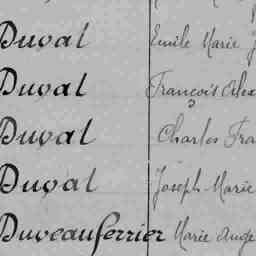 Duval Emile Marie J
Duval François Alex
Duval Charles Fra
Duval Joseph Marie
Duveauferrier Marie Ange